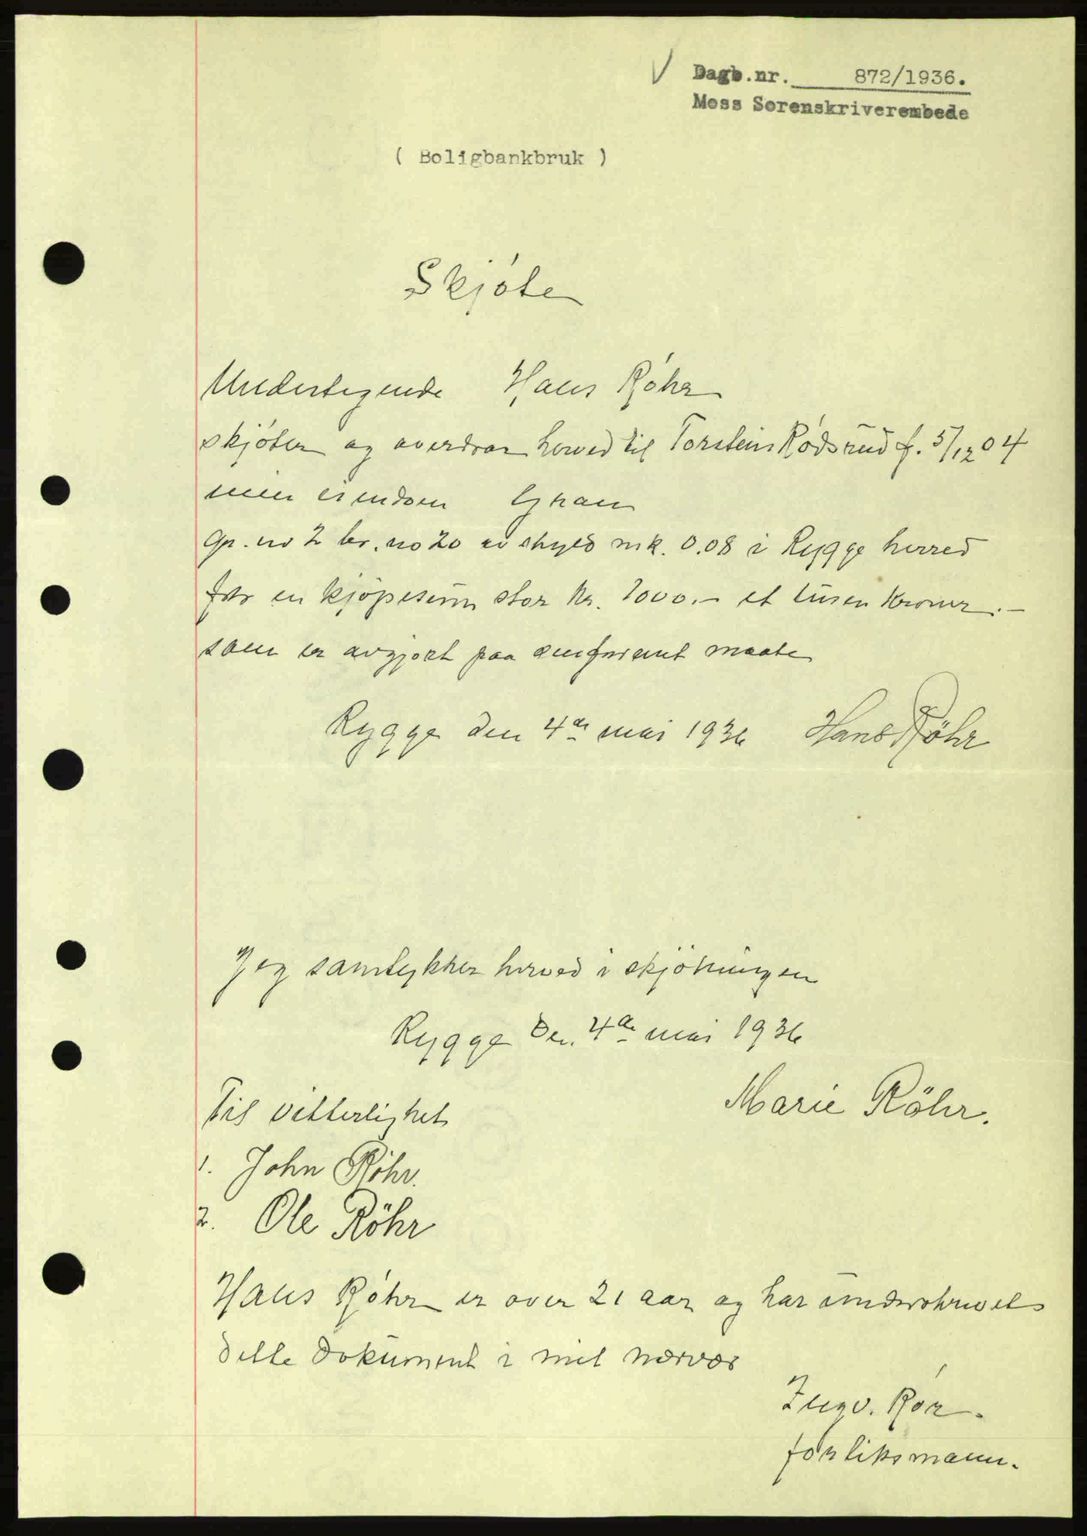 Dagb.nr. 872/1936.
Moss Sorenskriverembede
( Boligbankbruk )
Skjóte
Undertegnede Hans Róhr
skjóter og overdrar herved til Torstein Rödsrud f. 5/12 04
min eiendom Gran
gr. no 2 br. no 20 av skyld mk. 0.08 i Rygge herred
for en kjópesum stor kr. 1000.- et tusen kroner.-
som er avgjort paa omforent maate
Rygge den 4de mai 1936 Hans Röhr
Jeg samtykker herved i skjötningen
Rygge den 4de mai 1936
Marie Röhr.
Til vitterlighet
1. John Röhr.
2. Ole Röhr
Hans Róhr er over 21 aar og har underskrevet
dette dokument i mit nærvær
Ingv. Rór.
forliksmann.